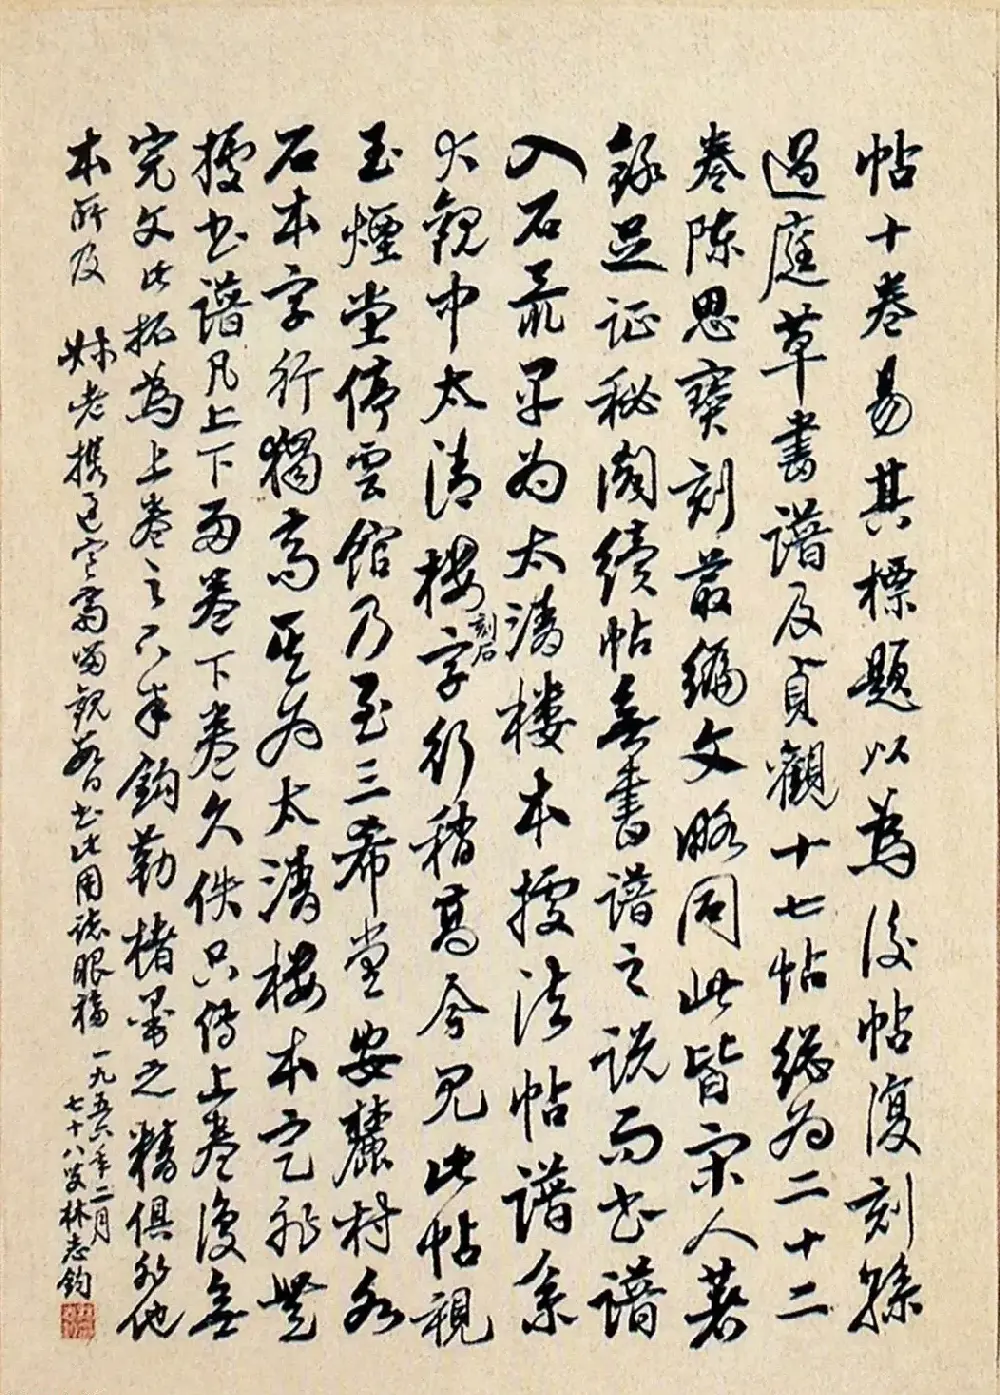 帖十卷易其標題以為後帖復刻孫
過庭草書譜及貞觀十七帖總為二十二
卷陳思寶刻叢編文略同此皆宋人著
錄足证秘閣續帖無書譜之说而書譜
入石最早为太清樓本據法帖譜系
大觀中太清樓刻石字行稍高今見此帖視
玉煙堂停雲館乃至三希堂安麓村各
石本字行獨高其为太清樓本定非
據書譜凡上下兩卷下卷久佚只傳上卷復無
完文此拓為上卷之只本鈎勒楮墨之精俱非他
本所及 老攜過宣南留觀書此用誌眼福
一九五六年二月
七十八叟林志鈞